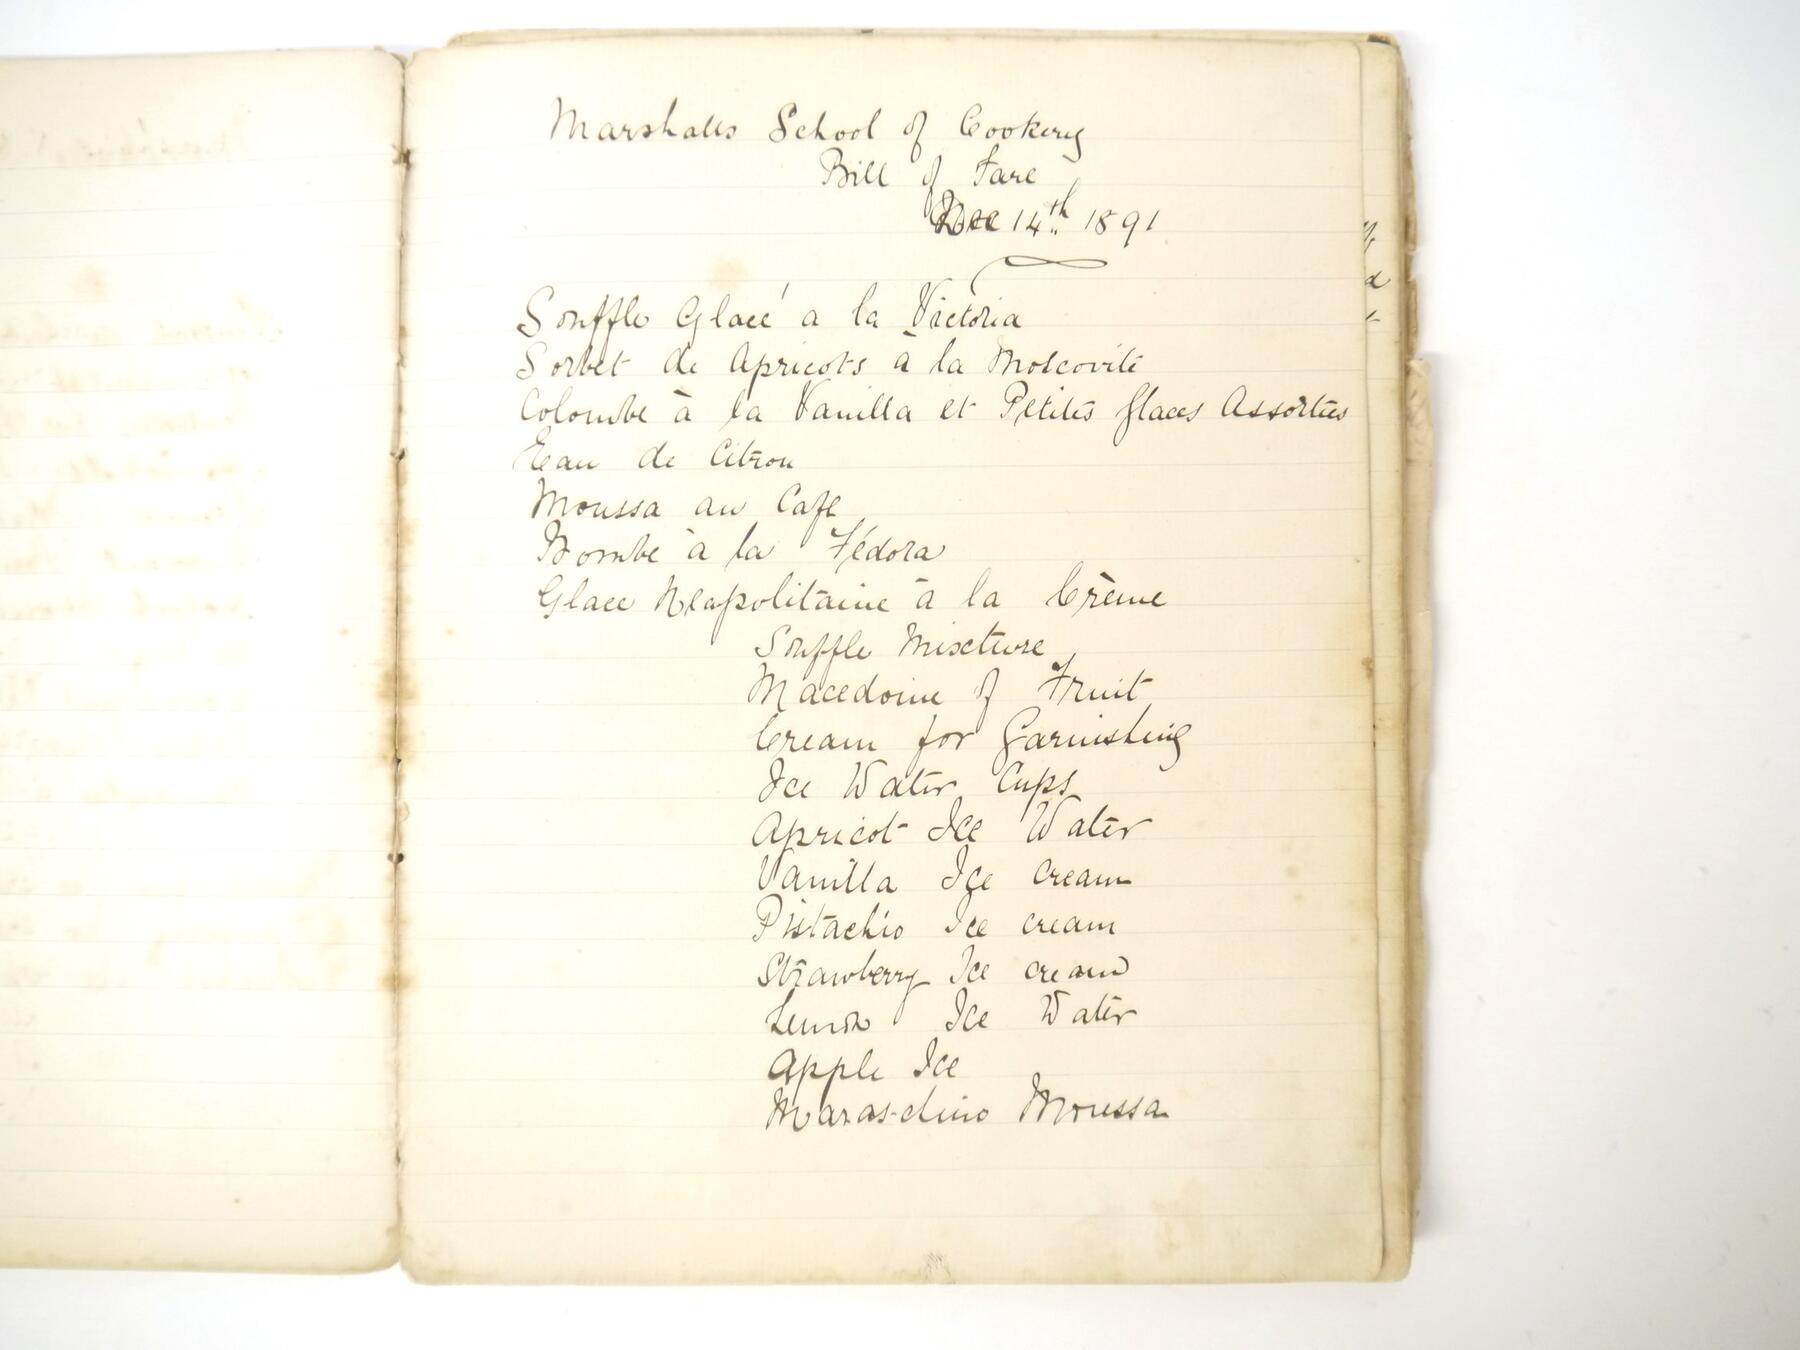 Marshalls School of Cookery
Bill of Fare
Dec 14th 1891
Souffle Glacé a la Victoria
Sorbet de Apricots à la Moscovite
Colombe à la Vanilla et Petites glaces Assorties
Eau de Citron
Moussa au Cafe
Bombe à la Fédora
Glace Neapolitaine à la Crème
Souffle Mixture
Macedoine of Fruit
Cream for Garnishing
Ice Water Cups
Apricot Ice Water
Vanilla Ice cream
Pistachio Ice cream
Strawberry Ice cream
Lemon Ice Water
Apple Ice
Maraschino Moussa